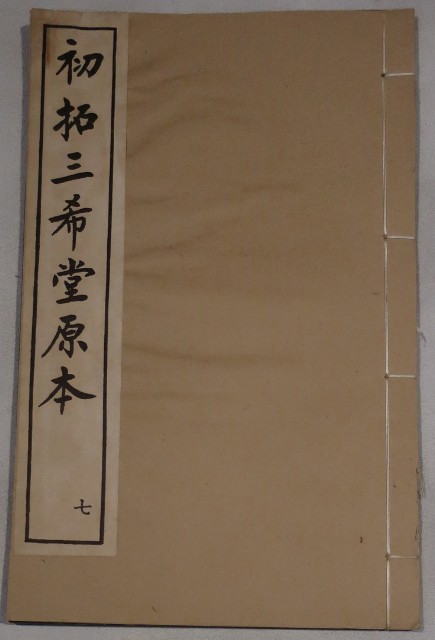 初拓三希堂原本
七